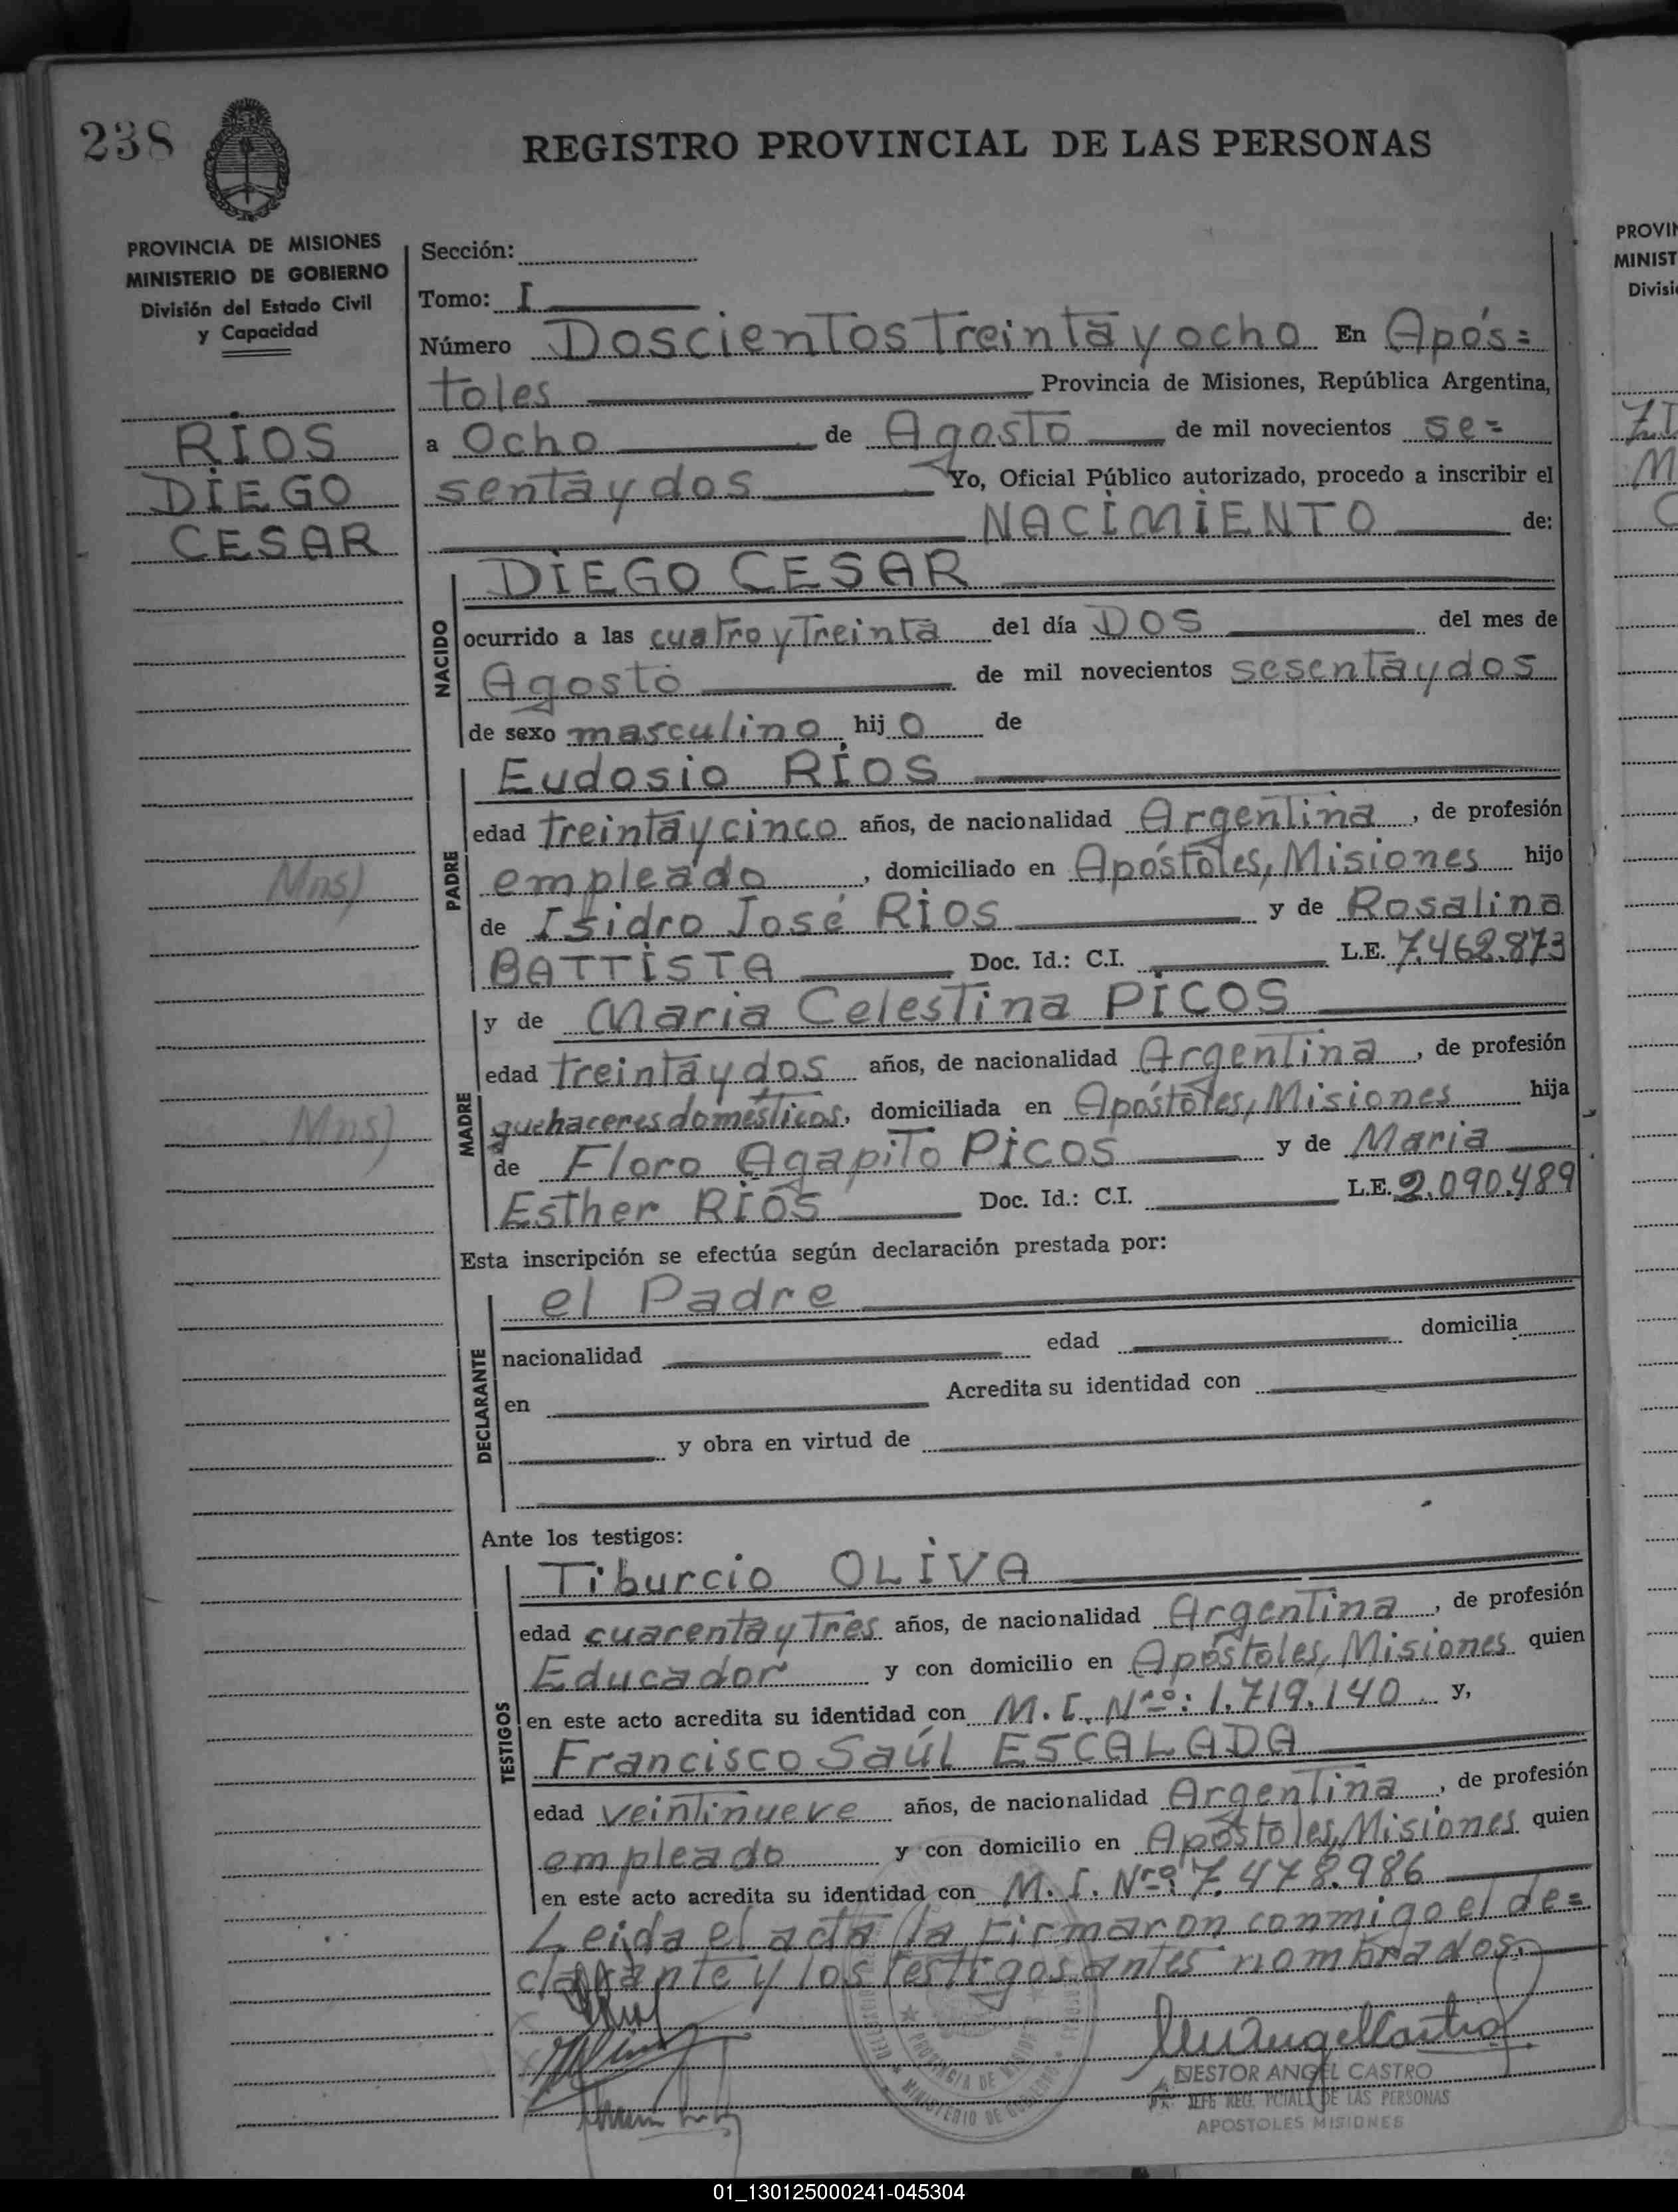 238
REGISTRO PROVINCIAL DE LAS PERSONAS
PROVINCIA DE MISIONES
MINISTERIO DE GOBIERNO
División del Estado Civil
y Capacidad
RIOS
DIEGO
CESAR
Mns)
Mns)
Sección:
Tomo: I
Número Doscientos Treinta y ocho En Após=
toles Provincia de Misiones, República Argentina,
a Ocho de Agosto de mil novecientos se=
senta y dos Yo, Oficial Público autorizado, procedo a inscribir el
NACIMIENTO de:
NACIDO
DIEGO CESAR
ocurrido a las cuatro y Treinta del día DOS del mes de
Agosto de mil novecientos sesenta y dos
de sexo masculino hijo de
PADRE
Eudosio RIOS
edad Treinta y cinco años, de nacionalidad Argentina, de profesión
empleado, domiciliado en Apóstoles, Misiones hijo
de Isidro José RIOS y de Rosalina
BATTISTA Doc. Id.: C.I. L.E. 7.462.873
MADRE
y de Maria Celestina PICOS
edad Treinta y dos años, de nacionalidad Argentina, de profesión
quehaceres domésticos, domiciliada en Apóstoles, Misiones hija
de Floro Agapito PICOS y de Maria
Esther RIOS Doc. Id.: C.I. L.E. 2.090.489
Esta inscripción se efectúa según declaración prestada por:
DECLARANTE
el Padre
nacionalidad edad domicilia
en Acredita su identidad con
y obra en virtud de
Ante los testigos:
TESTIGOS
Tiburcio OLIVA
edad cuarenta y Tres años, de nacionalidad Argentina, de profesión
Educador y con domicilio en Apóstoles, Misiones quien
en este acto acredita su identidad con M. I. Nro: 1.719.140 y,
Francisco Saúl ESCALADA
edad veintinueve años, de nacionalidad Argentina, de profesión
empleado y con domicilio en Apóstoles, Misiones quien
en este acto acredita su identidad con M. I. Nro: 7.478.986
Leida el acta la Firmaron conmigo el de=
clarante y los Testigos antes nombrados.
NESTOR ANGEL CASTRO
JEFE REG. PCIAL DE LAS PERSONAS
APOSTOLES MISIONES
PROVINCIA DE MISIONES
MINISTERIO DE GOBIERNO
PROVIN
MINIST
Divisi
01_130125000241-045304